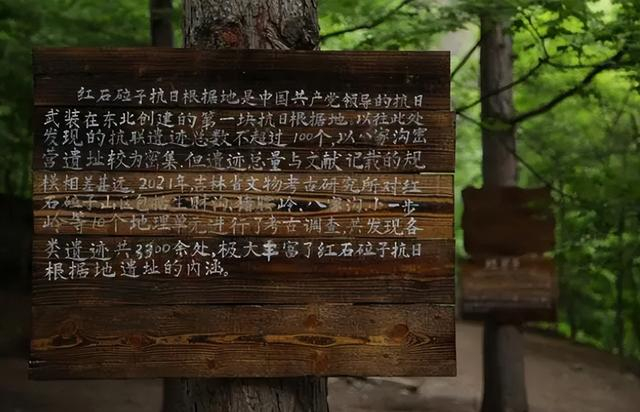 红石砬子抗日根据地是中国共产党领导的抗日
武装在东北创建的第一块抗日根据地,以往此处
发现的抗联遗迹总数不超过100个,以八家沟密
营遗址较为密集,但遗迹总量与文献记载的规
模相差甚远,2021年,吉林省文物考古研究所对红
石砬子山区包括 财沟 岭、八家沟、十一步
岭、等 个地理单元进行了考古调查,共发现各
类遗迹共3300余处,极大丰富了红石砬子抗日
根据地遗址的内涵。